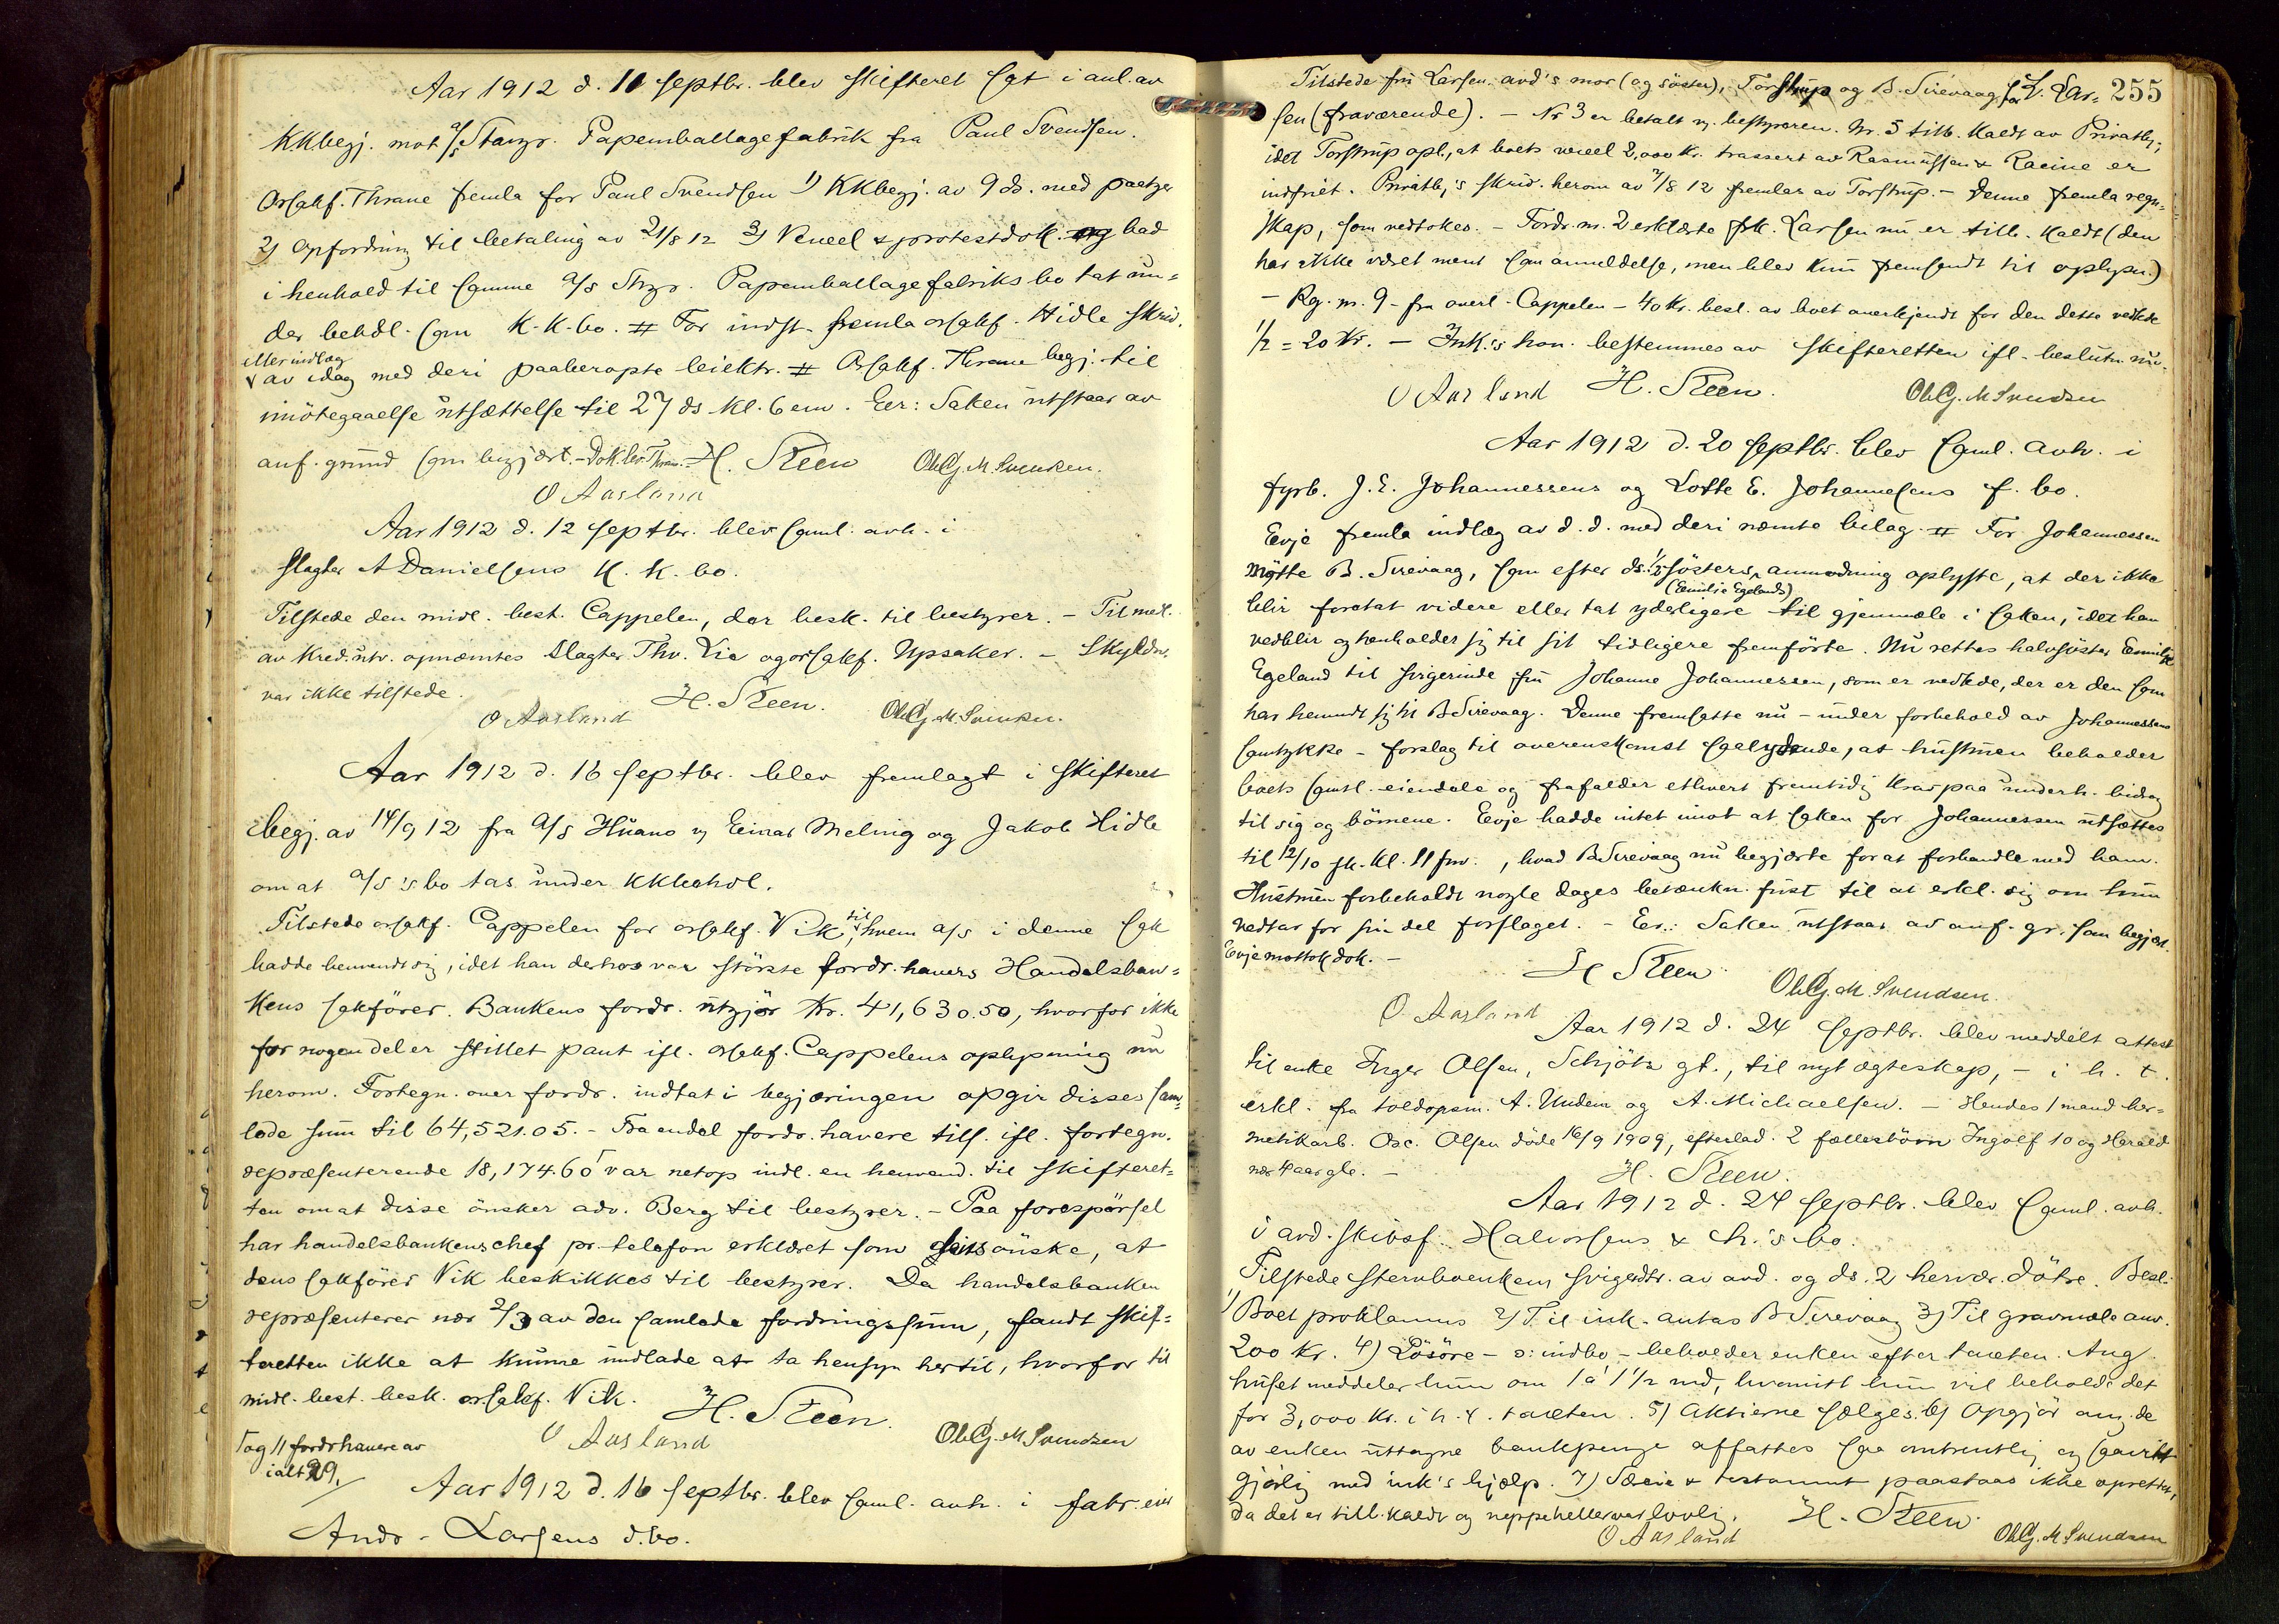 Aar 1912 d. 11 septbr. blev skifteret sat i anl. av
KKbegj. mot a/s Stavgr. Papemballagefabrik fra Paul Svendsen.
Orsakf. Thrane fremla for Paul Svendsen 1) KKbegj. av 9 ds. med paategn
2) Opfordring til betaling av 21/8 12 3) Vexel & protestdok. og bad
i henhold til samme a/s Stvgr. Papemballagefabriks bo tat un-
der behdl. som K.K.bo. # For indst. fremla orsakf. Hidle skrid.
eller indlæg
av idag med deri paaberopte leiektr. # Orsakf. Thrane begj. til
imötegaaelse utsættelse til 27 ds kl. 6 em. Eer: Saken utstaar av
anf. grund som begjært. - Dok. lev. Thrane. - H. Steen Ole G. M. Svendsen.
O Aasland
Aar 1912 d. 12 septbr. blev saml. avh. i
slagter A Danielsens K. K. bo.
Tilstede den midl. best. Cappelen, der besk. til bestyrer. - Til medl.
av Kred.utv. opnæmtes Slagter Thv. Lie og orsakf. Upsaker. - Skyldn.
var ikke tilstede. H. Steen.
O Aasland Ole G. M. Svendsen.
Aar 1912 d. 16 septbr. blev fremlagt i skifteret
begj. av 14/9 12 fra a/s Huano v. Einar Melnig og Jakob Hidle
om at a/s's bo tas under KKbehdl.
Tilstede orsakf. Cappelen for orsakf. Vik, til hvem a/s i denne sak
hadde henvendt sig, idet han derhos var störste fordr.havers Handelsban-
kens sakförer. Bankens fordr. utgjör Kr. 41,630.50, hvorfor ikke
for nogen del er stillet pant ifl. orsakf. Cappelens oplysning nu
herom. Fortegn. over fordr. indtat i begjæringen opgir disses sam-
lede sum til 64,521.05. - Fra endel fordr.havere tils. ifl. fortegn.
repræsenterende 18,174.60 var netop indl. en henvend. til skifteret-
ten om at disse önsker adv. Berg til bestyrer. - Paa forespörsel
har handelsbankens chef pr. telefon erklæret som sit önske, at
dens sakförer Vik beskikkes til bestyrer. Da handelsbanken
repræsenterer nær 2/3 av den samlede fordringssum, fandt skif-
teretten ikke at kunne undlade at ta hensyn hertil, hvorfor til
midl. best. besk. orsakf. Vik. H. Steen.
O Aasland Ole G. M. Svendsen
og 11 fordrhavere av
ialt 29.
Aar 1912 d. 16 septbr. blev saml. avh. i fabr.eier
Andr. Larsens d.bo.
255
Tilstede fru Larsen. avd's mor (og söster), Torstrup og B. Sirevaag for L. Lar-
sen (fraværende). - Nr 3 er betalt v. bestyreren. Nr. 5 tilb. kaldt av Privatb.,
idet Torstrup opl., at boets vexel 2,000 Kr. trassert av Rasmussen & Racine er
indfriet. Privatb.'s skriv. herom av 7/8 12 fremlas av Torstrup. - Denne fremla regn-
skap, som vedtokes. - Fordr. nr. 2 erklærte frk. Larsen nu er tilb. kaldt (den
har ikke været ment som anmeldelse, men blev kun fremsendt til oplysn.)
- Rg. nr. 9 - fra overl. Cappelen - 40 Kr. besl. av boet anerkjendt for den dette vedkde
1/2 = 20 Kr. - Ink.'s hon. bestemmes av skifteretten ifl. beslutn. nu.
O Aasland H. Steen. Ole G. M. Svendsen
Aar 1912 d. 20 septbr. blev saml. avh. i
fyrb. J. E. Johannessens og Lotte E. Johannesens f. bo.
Evje fremla indlæg av d. d. med deri nævnte bilag. # For Johannessen
mötte B. Sirevaag, som efter ds. 1/2 sösters anmodning oplyste, at der ikke
(Emilie Egelands)
blir foretat videre eller tat yderligere til gjenmæle i saken, idet han
vedblir og henholder sig til sit tidligere fremförte. Nu rettes halvsöster Emilie
Egeland til svigerinde fru Johanne Johannessen, som er vedkde, der er den som
har henvendt sig til B Sirevaag. Denne fremsatte nu - under forbehold av Johannessens
samtykke - forslag til overenskomst saalydende, at hustruen beholder
boets samtl. eiendele og frafalder ethvert fremtidig krav paa underh. bidrag
til sig og börnene. Evje hadde intet imot at saken for Johannessen utsættes
til 12/10 fk. Kl. 11 fm., hvad B Sirevaag nu begjærte for at forhandle med ham.
Hustruen forbeholdt nogle dages betænkn. frist til at erkl. sig om hun
vedtar for sin del forslaget. - Eer.: Saken utstaar av anf. gr. som begjært.
Evje mottok dok. - H Steen Ole G. M. Svendsen.
O. Aasland
Aar 1912 d. 24 septbr. blev meddelt attest
til enke Inger Olsen, Schjöts gt., til nyt ægteskap, - i h. t.
erkl. fra toldopsm. A. Undem og A. Michaelsen. - Hendes 1 mand her-
metikarb. Osc. Olsen döde 16/9 1909, efterlad. 2 fællesbörn Ingolf 10 og Harald
nær 4 aar gle. - H. Steen.
Aar 1912 d. 24 septbr. blev saml. avh.
i avd. skibsf. Halvorsens & h.'s bo.
Tilstede sterboenken, svigerdtr. av avd. og ds. 2 hervær. dötre. Besl.
1) Boet proklamus 2) Til ink. antas B Sirevaag 3) Til gravmæle anv.
200 Kr. 4) Lösöre - o: indbo - beholder enken efter taxten. Ang.
huset meddeler hun om 1 à 1 1/2 md, hvorvidt hun vil beholde det
for 3,000 Kr. i h. t. taxten. 5) Aktierne sælges. 6) Opgjör ang. de
av enken uttagne bankpenge affattes saa omtrentlig og saavidt
gjörlig med ink's hjælp. 7) Særeie & testament paastaas ikke oprettet,
da det er tilb.kaldt og neppe heller var lovlig. H. Steen.
O Aasland Ole G. M. Svendsen